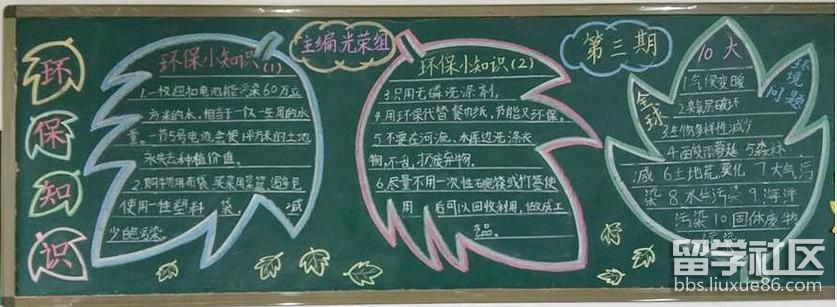 环
保
知
识
环保小知识(1)
1.一枚纽扣电池能污染60万立
方米的水,相当于一个人一生用的水
量。一节5号电池会使1平方米的土地
永失去种植价值。
2.购物用布袋 买菜用菜篮
使用一次性塑料袋。减
少白色污染。
主编光荣组
环保小知识(2)
3.只用无磷洗涤剂。
4.用环保代替餐巾纸,节能又环保。
5.不要在河流、水库边洗涤衣
物,不乱扔废弃物。
6.尽量不用一次性
用 后可以回收利用,做成工
艺品。
第三期
全球
10大
环境
问题
1气候变暖
2臭氧层破坏
3生物多样性减少
4酸雨蔓延 5森林
减 6土地荒漠化 7大气污
染 8水体污染 9海洋
污染 10固体废物
污染
留学社区
bbs.liuxue86.com